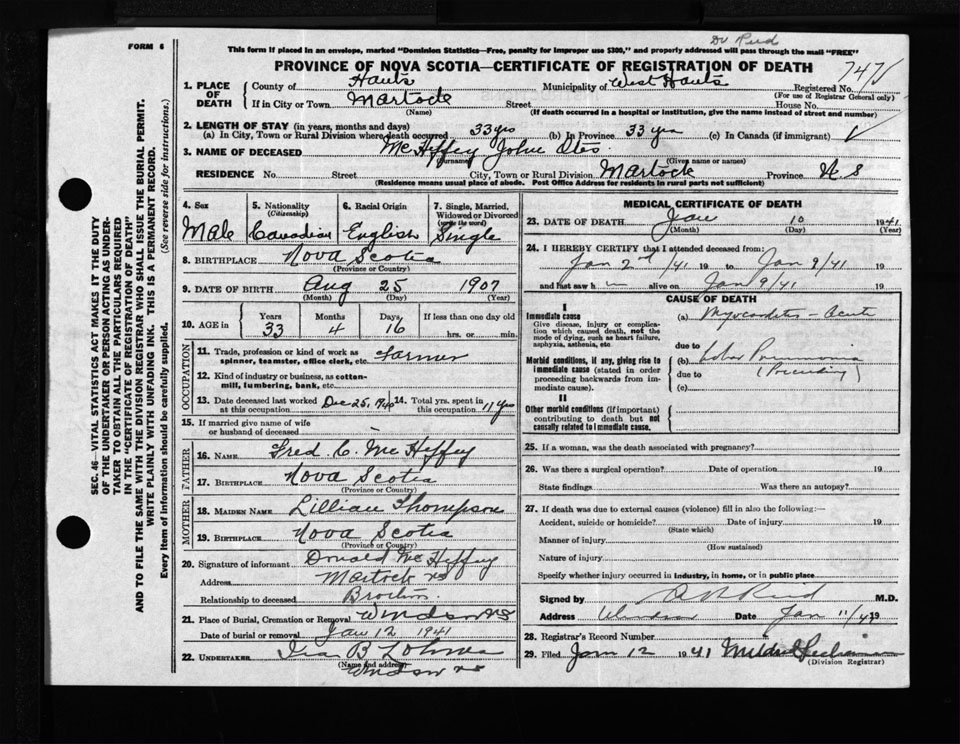 Dr Reid
FORM 6
This form if placed in an envelope, marked "Dominion Statistics—Free, penalty for improper use $300," and properly addressed will pass through the mail "FREE"
PROVINCE OF NOVA SCOTIA—CERTIFICATE OF REGISTRATION OF DEATH
1. PLACE OF DEATH
County of Hants Municipality of West Hants Registered No. 747
(For use of Registrar General only)
If in City or Town Martock Street House No.
(Name) (If death occurred in a hospital or institution, give the name instead of street and number)
2. LENGTH OF STAY (in years, months and days)
(a) In City, Town or Rural Division where death occurred 33 yrs (b) In Province 33 yrs (c) In Canada (if immigrant)
3. NAME OF DECEASED McHeffey John Otis
(Surname) (Given name or names)
RESIDENCE No. Street City, Town or Rural Division Martock Province N S
(Residence means usual place of abode. Post Office Address for residents in rural parts not sufficient)
4. Sex Male
5. Nationality (Citizenship) Canadian
6. Racial Origin English
7. Single, Married, Widowed or Divorced (write the word) Single
8. BIRTHPLACE Nova Scotia
(Province or Country)
9. DATE OF BIRTH Aug 25 1907
(Month) (Day) (Year)
10. AGE in Years 33 Months 4 Days 16 If less than one day old hrs. or min.
OCCUPATION
11. Trade, profession or kind of work as spinner, teamster, office clerk, etc. Farmer
12. Kind of industry or business, as cotton-mill, lumbering, bank, etc.
13. Date deceased last worked at this occupation Dec 25, 1940 14. Total yrs. spent in this occupation 11 yrs
15. If married give name of wife or husband of deceased -
FATHER
16. NAME Fred C. McHeffey
17. BIRTHPLACE Nova Scotia
(Province or Country)
MOTHER
18. MAIDEN NAME Lillian Thompson
19. BIRTHPLACE Nova Scotia
(Province or Country)
20. Signature of informant Donald McHeffey
Address Martock NS
Relationship to deceased Brother
21. Place of Burial, Cremation or Removal Windsor NS
Date of burial or removal Jan 12 1941
22. UNDERTAKER Ira B
(Name and address)
Windsor NS
MEDICAL CERTIFICATE OF DEATH
23. DATE OF DEATH Jan 10 1941
(Month) (Day) (Year)
24. I HEREBY CERTIFY that I attended deceased from:
Jan 2nd /41 19 to Jan 9/41 19
and last saw h m alive on Jan 9/41 19
CAUSE OF DEATH
I
Immediate cause
Give disease, injury or complication which caused death, not the mode of dying, such as heart failure, asphyxia, asthenia, etc.
(a) Myocarditis - Acute
due to
Morbid conditions, if any, giving rise to immediate cause (stated in order proceeding backwards from immediate cause).
(b) Lobar Pneumonia
due to (Preceding)
(c)
II
Other morbid conditions (if important) contributing to death but not causally related to immediate cause.
25. If a woman, was the death associated with pregnancy?
26. Was there a surgical operation? Date of operation 19
State findings Was there an autopsy?
27. If death was due to external causes (violence) fill in also the following:—
Accident, suicide or homicide? Date of injury 19
(State which)
Manner of injury
(How sustained)
Nature of injury
Specify whether injury occurred in industry, in home, or in public place
Signed by Reid M.D.
Address Windsor Date Jan 11/41 19
28. Registrar's Record Number
29. Filed Jan 12 1941 Mildred
(Division Registrar)
SEC. 46—VITAL STATISTICS ACT MAKES IT THE DUTY
OF THE UNDERTAKER OR PERSON ACTING AS UNDER-
TAKER TO OBTAIN ALL THE PARTICULARS REQUIRED
IN THE "CERTIFICATE OF REGISTRATION OF DEATH"
AND TO FILE THE SAME WITH THE DIVISION REGISTRAR WHO SHALL ISSUE THE BURIAL PERMIT.
WRITE PLAINLY WITH UNFADING INK. THIS IS A PERMANENT RECORD.
Every item of information should be carefully supplied. (See reverse side for instructions.)